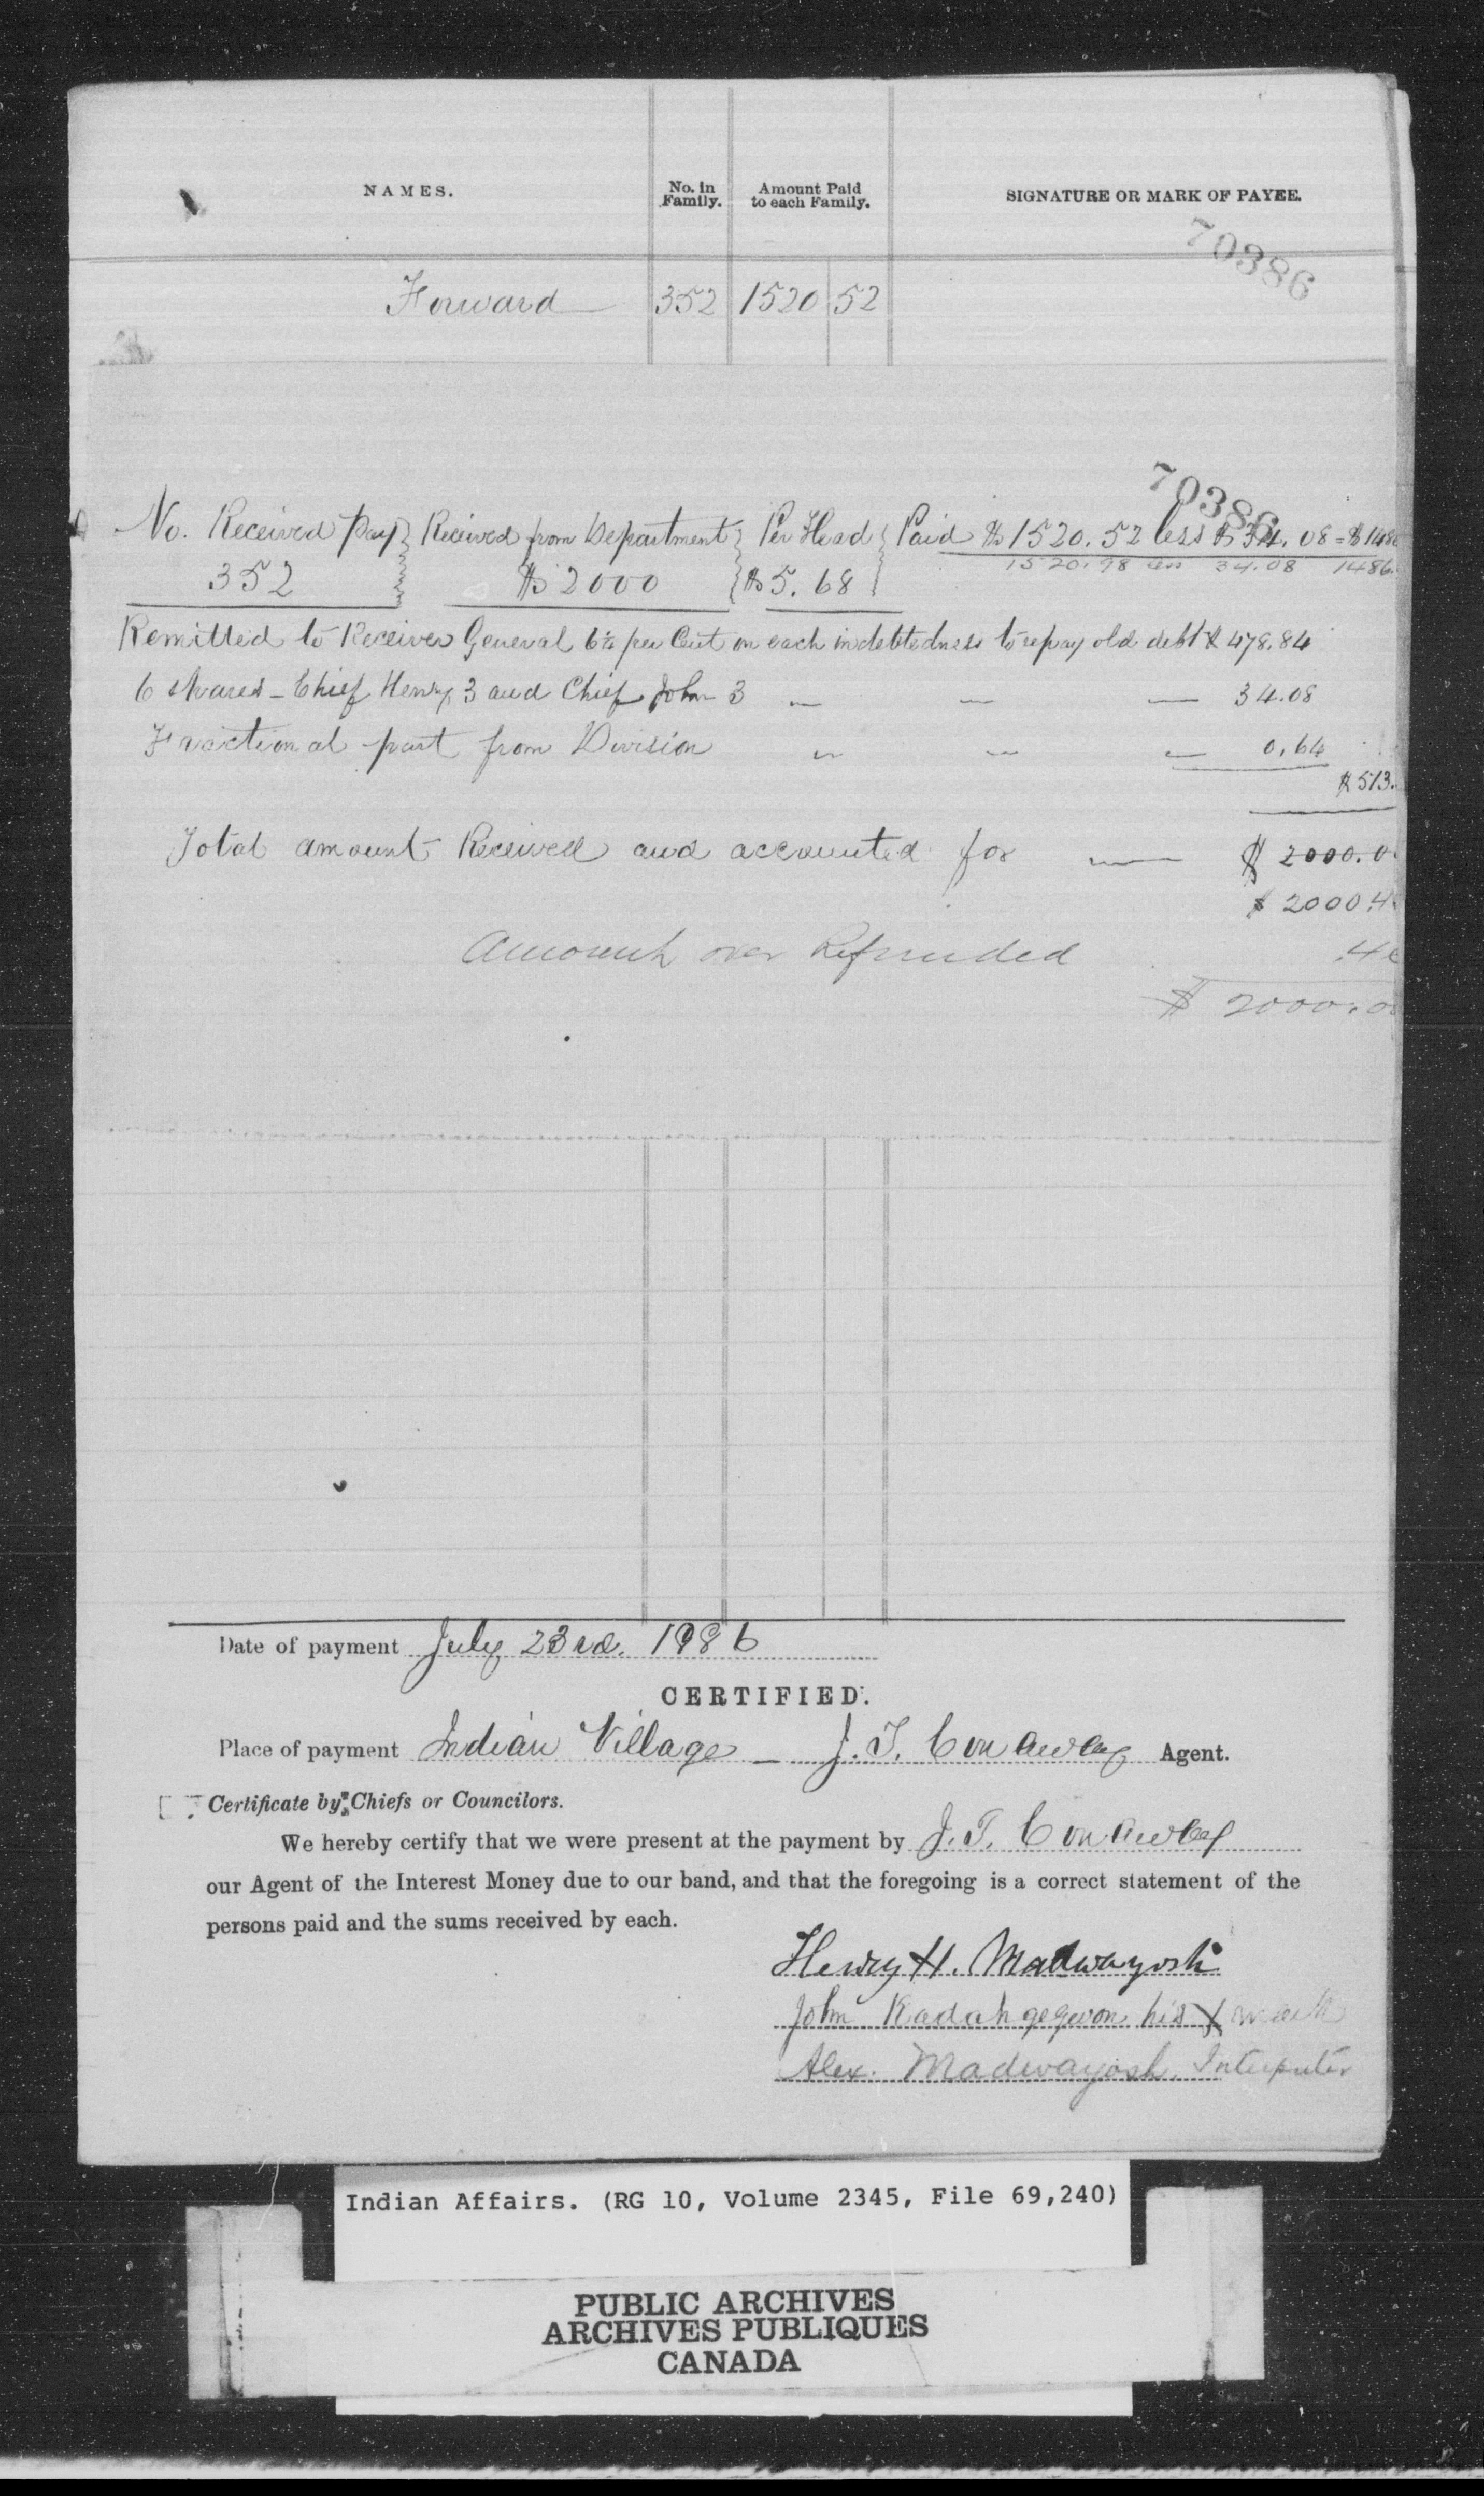 NAMES. No. in Family. Amount Paid to each Family. SIGNATURE OR MARK OF PAYEE.
70386
Forward 352 1520 52
70386
No. Received Pay Received from Department Per Head Paid $1520.52 less $34.08 = $1486
352 $2000 $5.68 1520.98 less 34.08 1486.
Remitted to Receiver General 6¼ per Cent on each indebtedness to repay old debt $ 478.84
6 Shares - Chief Henry 3 and Chief John 3 " — — 34.08
Fractional part from Division " — — 0.64
$513.
Total amount Received and accounted for — $ 2000.0
$ 2000.4
Amount over Refunded .4
$ 2000.0
Date of payment July 23rd. 1986
CERTIFIED.
Place of payment Indian Village - J. T. Conaway Agent.
Certificate by Chiefs or Councilors.
We hereby certify that we were present at the payment by J. T. Conaway
our Agent of the Interest Money due to our band, and that the foregoing is a correct statement of the
persons paid and the sums received by each.
Henry H. Madwayosh
John Kadahgegwon his X mark
Alex. Madwayosh, Interpreter
Indian Affairs. (RG 10, Volume 2345, File 69,240)
PUBLIC ARCHIVES
ARCHIVES PUBLIQUES
CANADA